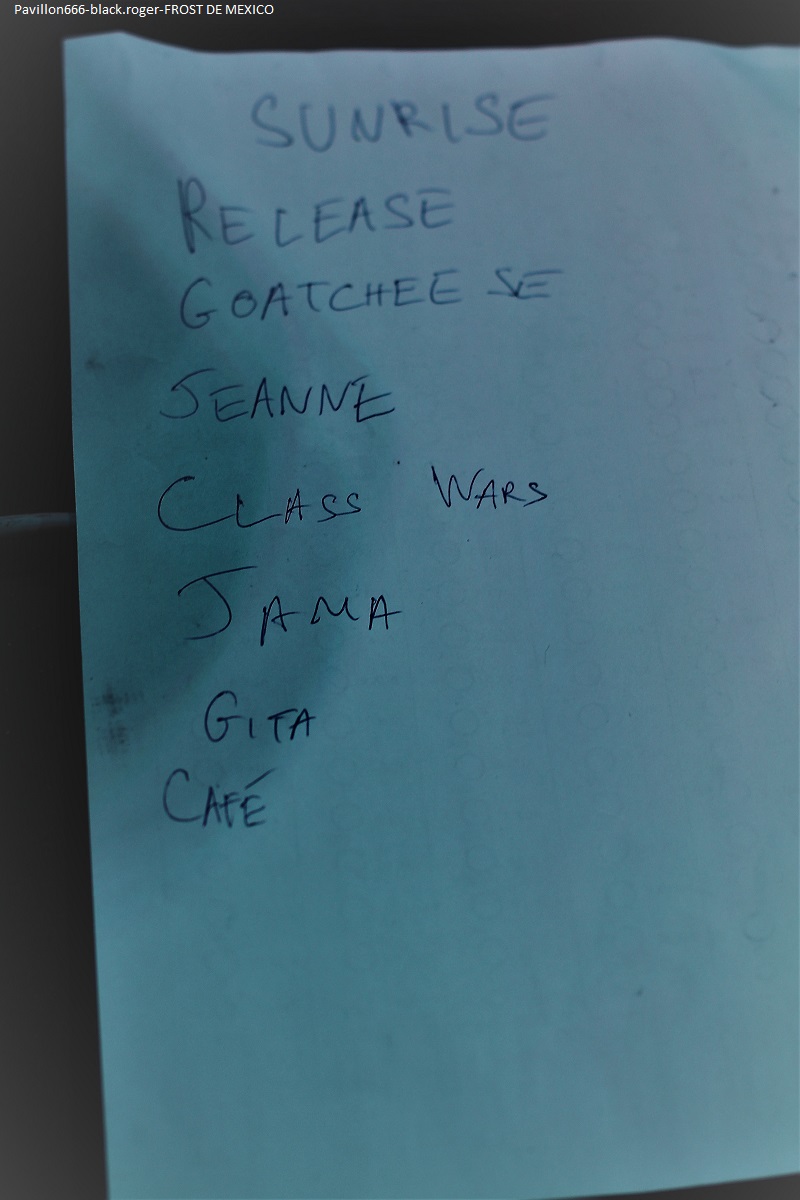 Pavillon666-black.roger-FROST DE MEXICO
SUNRISE
RELEASE
GOATCHEESE
JEANNE
CLASS WARS
JAMA
GITA
CAFÉ